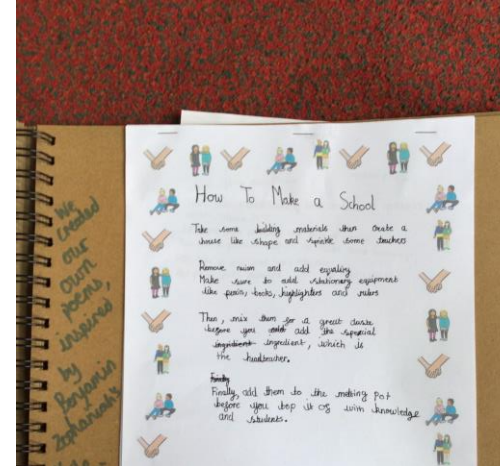 We
created
our
own
poems,
inspired
by
Benjamin
Zephaniah's
How To Make a School
Take some building materials then create a
house like shape and sprinkle some teachers
Remove and add equality
Make sure to add stationary equipment
like pens, books, highlighters and rulers
Then, mix them for a great
before you add the special
ingredient ingredient, which is
the headteacher.
Finally
Finally, add them to the melting pot
before you top it of with knowledge
and students.